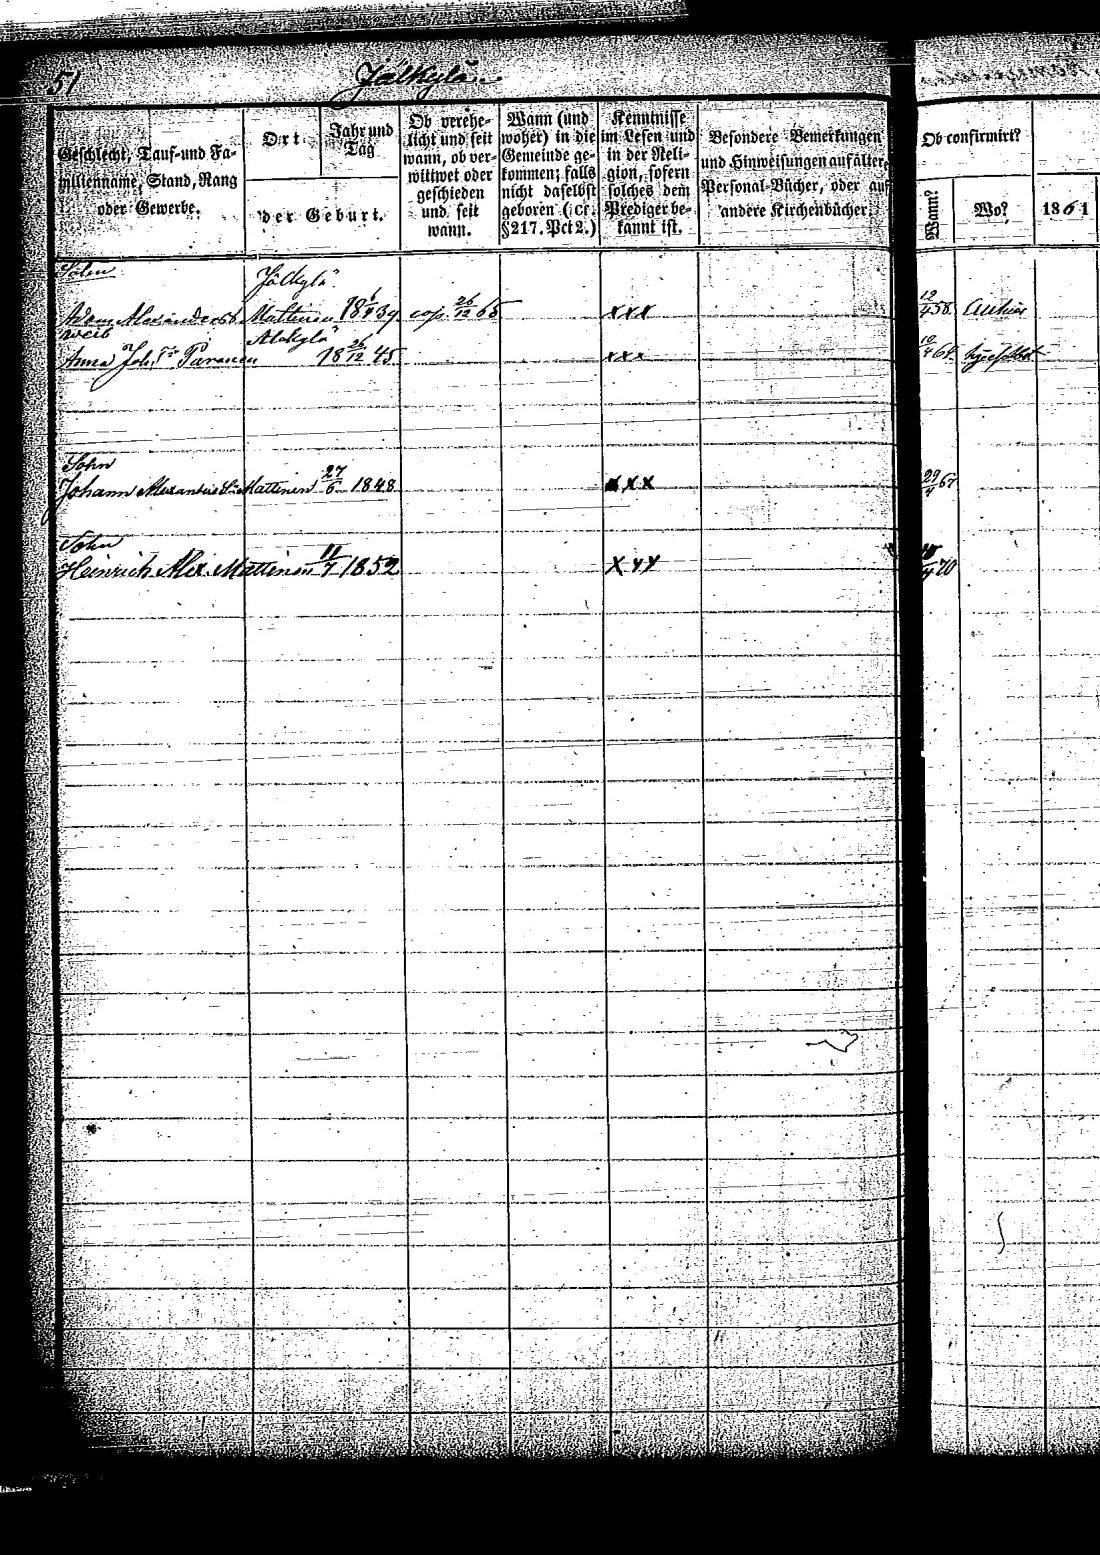 51
Jälkylä
Geschlecht, Tauf- und Fa-
milienname, Stand, Rang
oder Gewerbe.
Ort
Jahr und
Tag
der Geburt.
Ob verehe-
licht und seit
wann, ob ver-
wittwet oder
geschieden
und seit
wann.
Wann (und
woher) in die
Gemeinde ge-
kommen; falls
nicht daselbst
geboren (cf.
§217. Pct 2.)
Kenntnisse
im Lesen und
in der Reli-
gion, sofern
solches dem
Prediger be-
kannt ist.
Besondere Bemerkungen
und Hinweisungen auf älter
Personal-Bücher, oder auf
andere Kirchenbücher.
Ob confirmirt?
Wann?
Wo?
1861
Sohn
Jälkylä
Adam Alexanders S. Mattinen 18 6/9 39 cop. 26/12 65 xxx 12/4 58
Weib
Alakylä
Anna Joh. Tr Paranen 18 26/12 45 xxx 10/4 64
Sohn
Johann Alexanders S. Mattinen 27/6 1848 xxx 29/4 67
Sohn
Heinrich Alex. Mattinen 11/7 1852 xxx 70